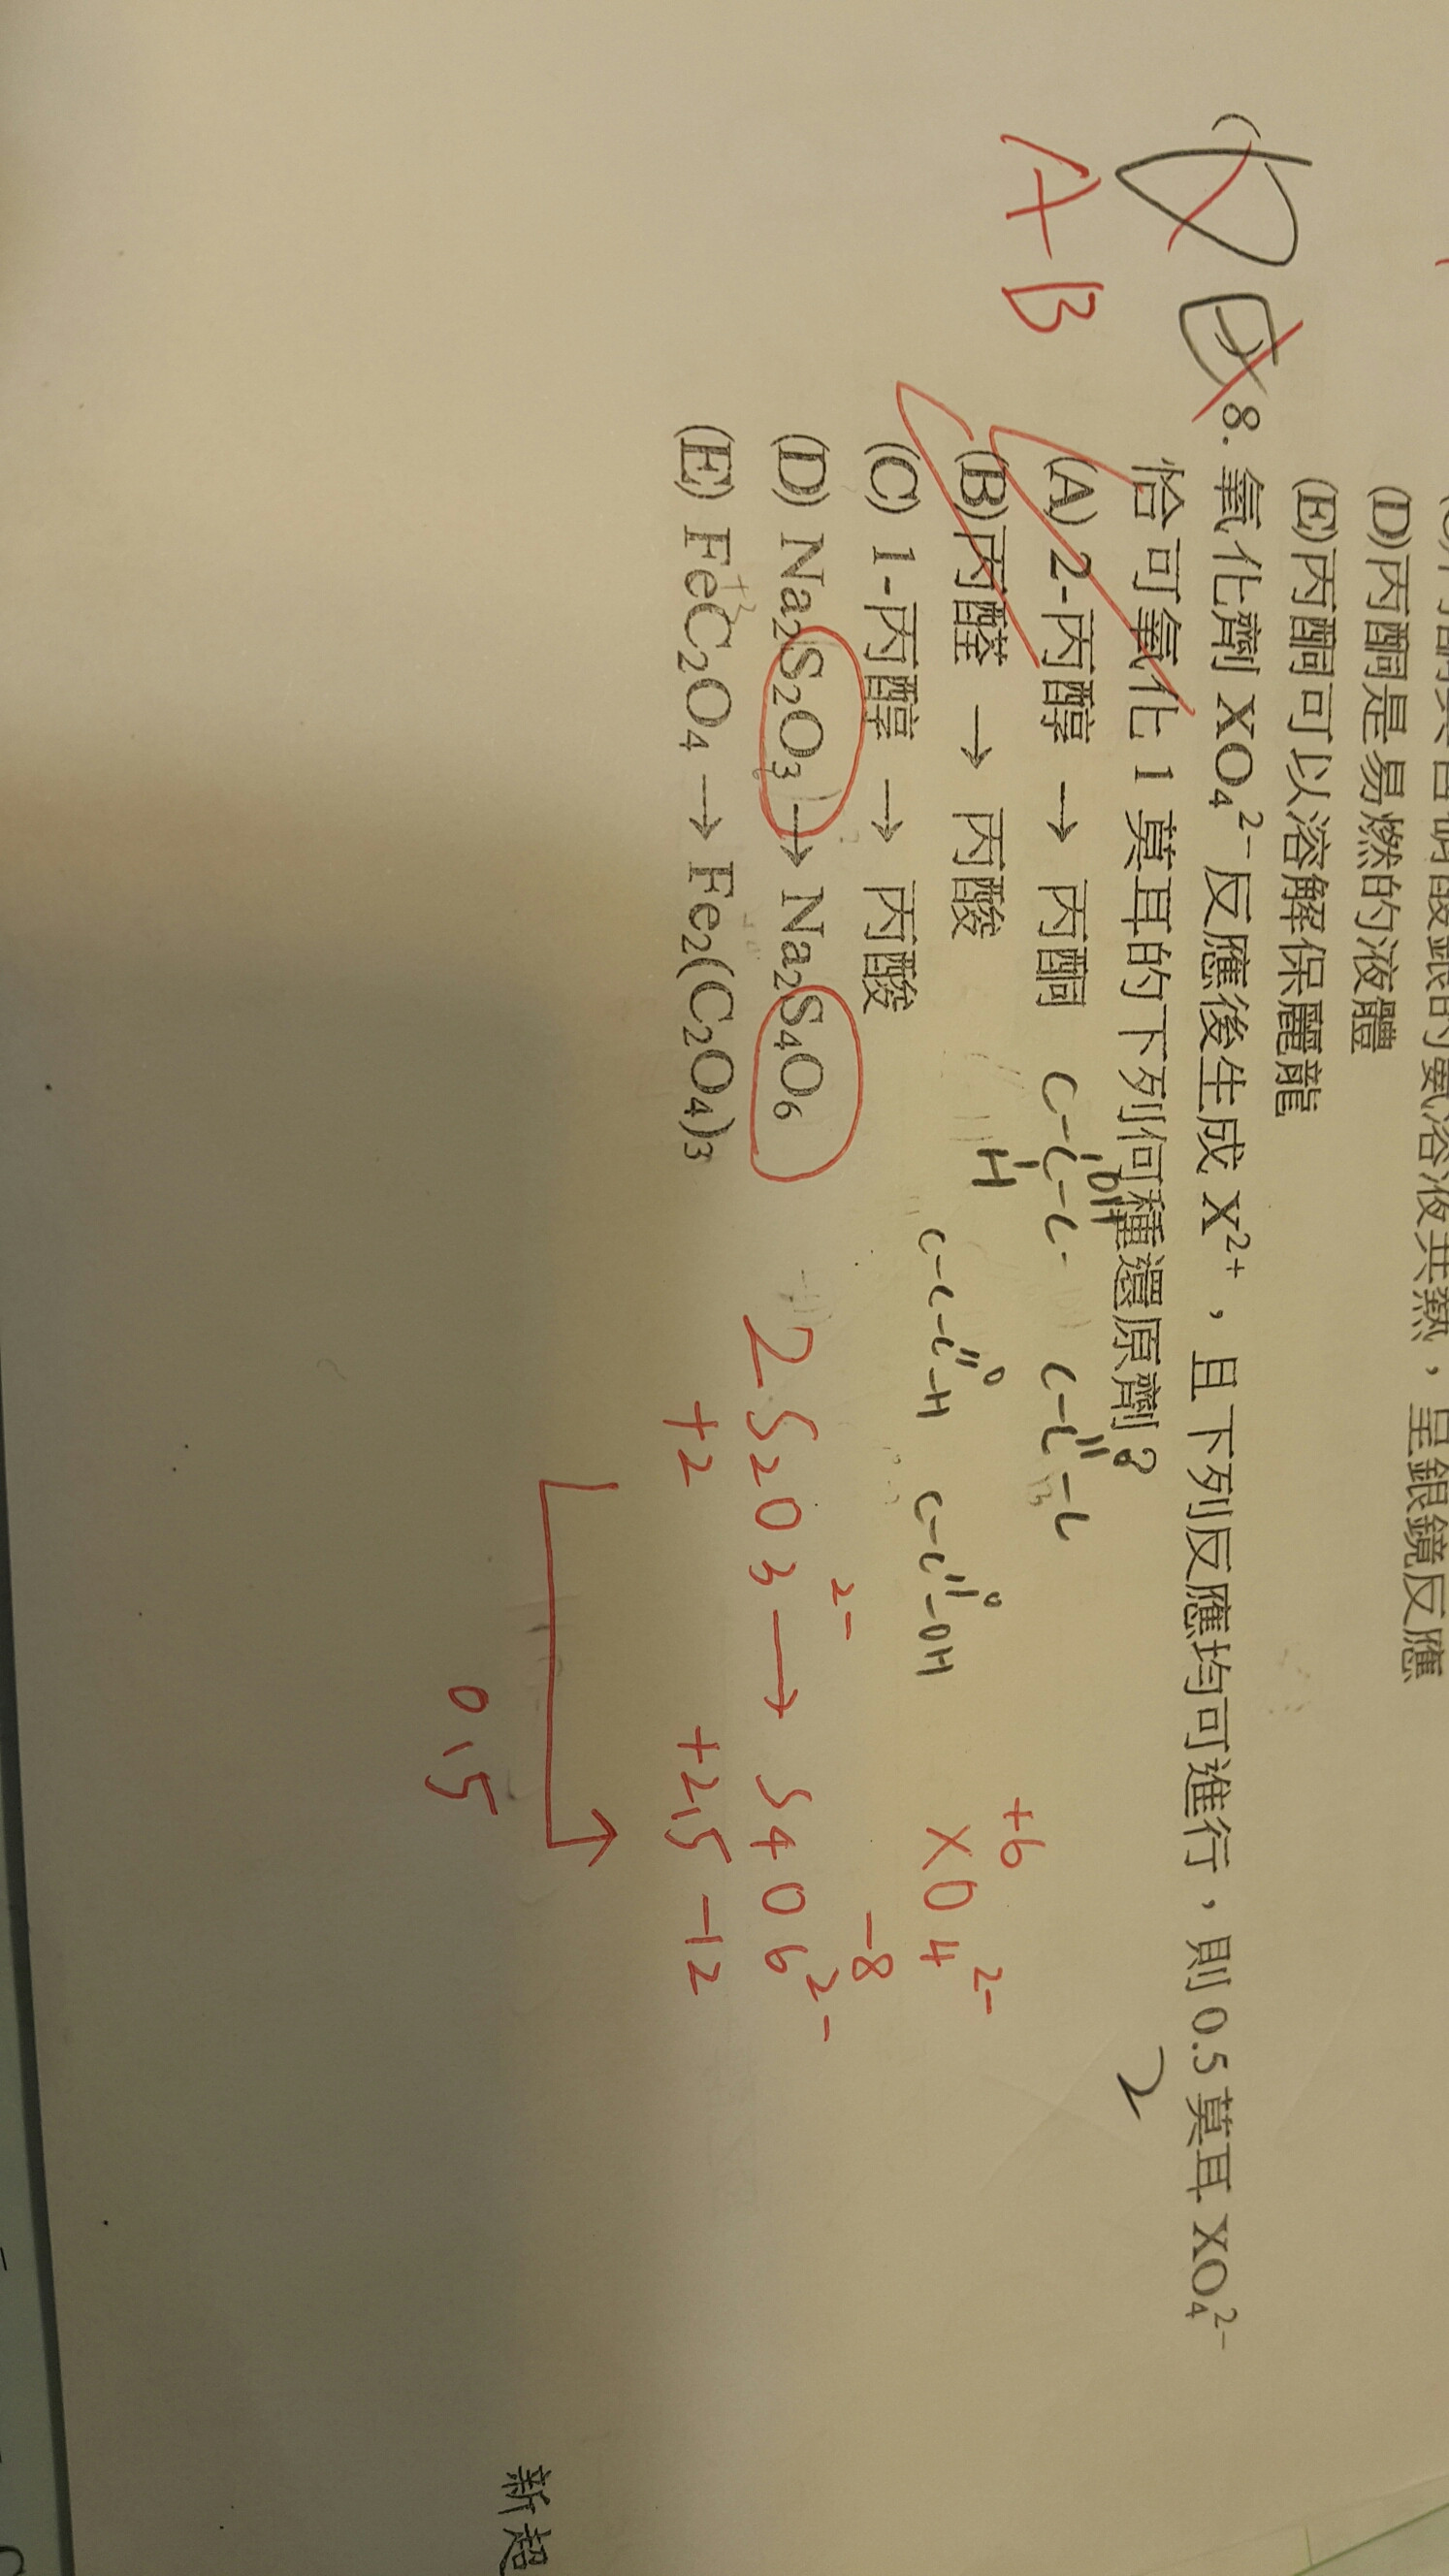 (D)丙酮是易燃的液體
(E)丙酮可以溶解保麗龍
(D E 8. 氧化劑 XO₄²⁻反應後生成 X²⁺，且下列反應均可進行，則 0.5 莫耳 XO₄²⁻
A B
恰可氧化 1 莫耳的下列何種還原劑？
2
(A) 2-丙醇 → 丙酮
(B)丙醛 → 丙酸
(C) 1-丙醇 → 丙酸
(D) Na₂S₂O₃ → Na₂S₄O₆
(E) FeC₂O₄ → Fe₂(C₂O₄)₃
OH
C-C-C
H
O
C-C-C
O
C-C-C-H
O
C-C-OH
+6
XO4 2-
-8
2 S2O3 2- → S4O6 2-
+2 +2.5 -12
0.5
新超